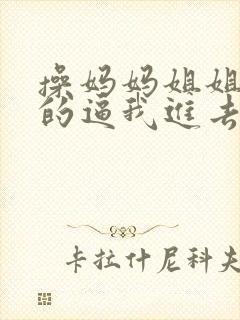 操妈妈姐姐
的逼我进去
卡拉什尼科夫